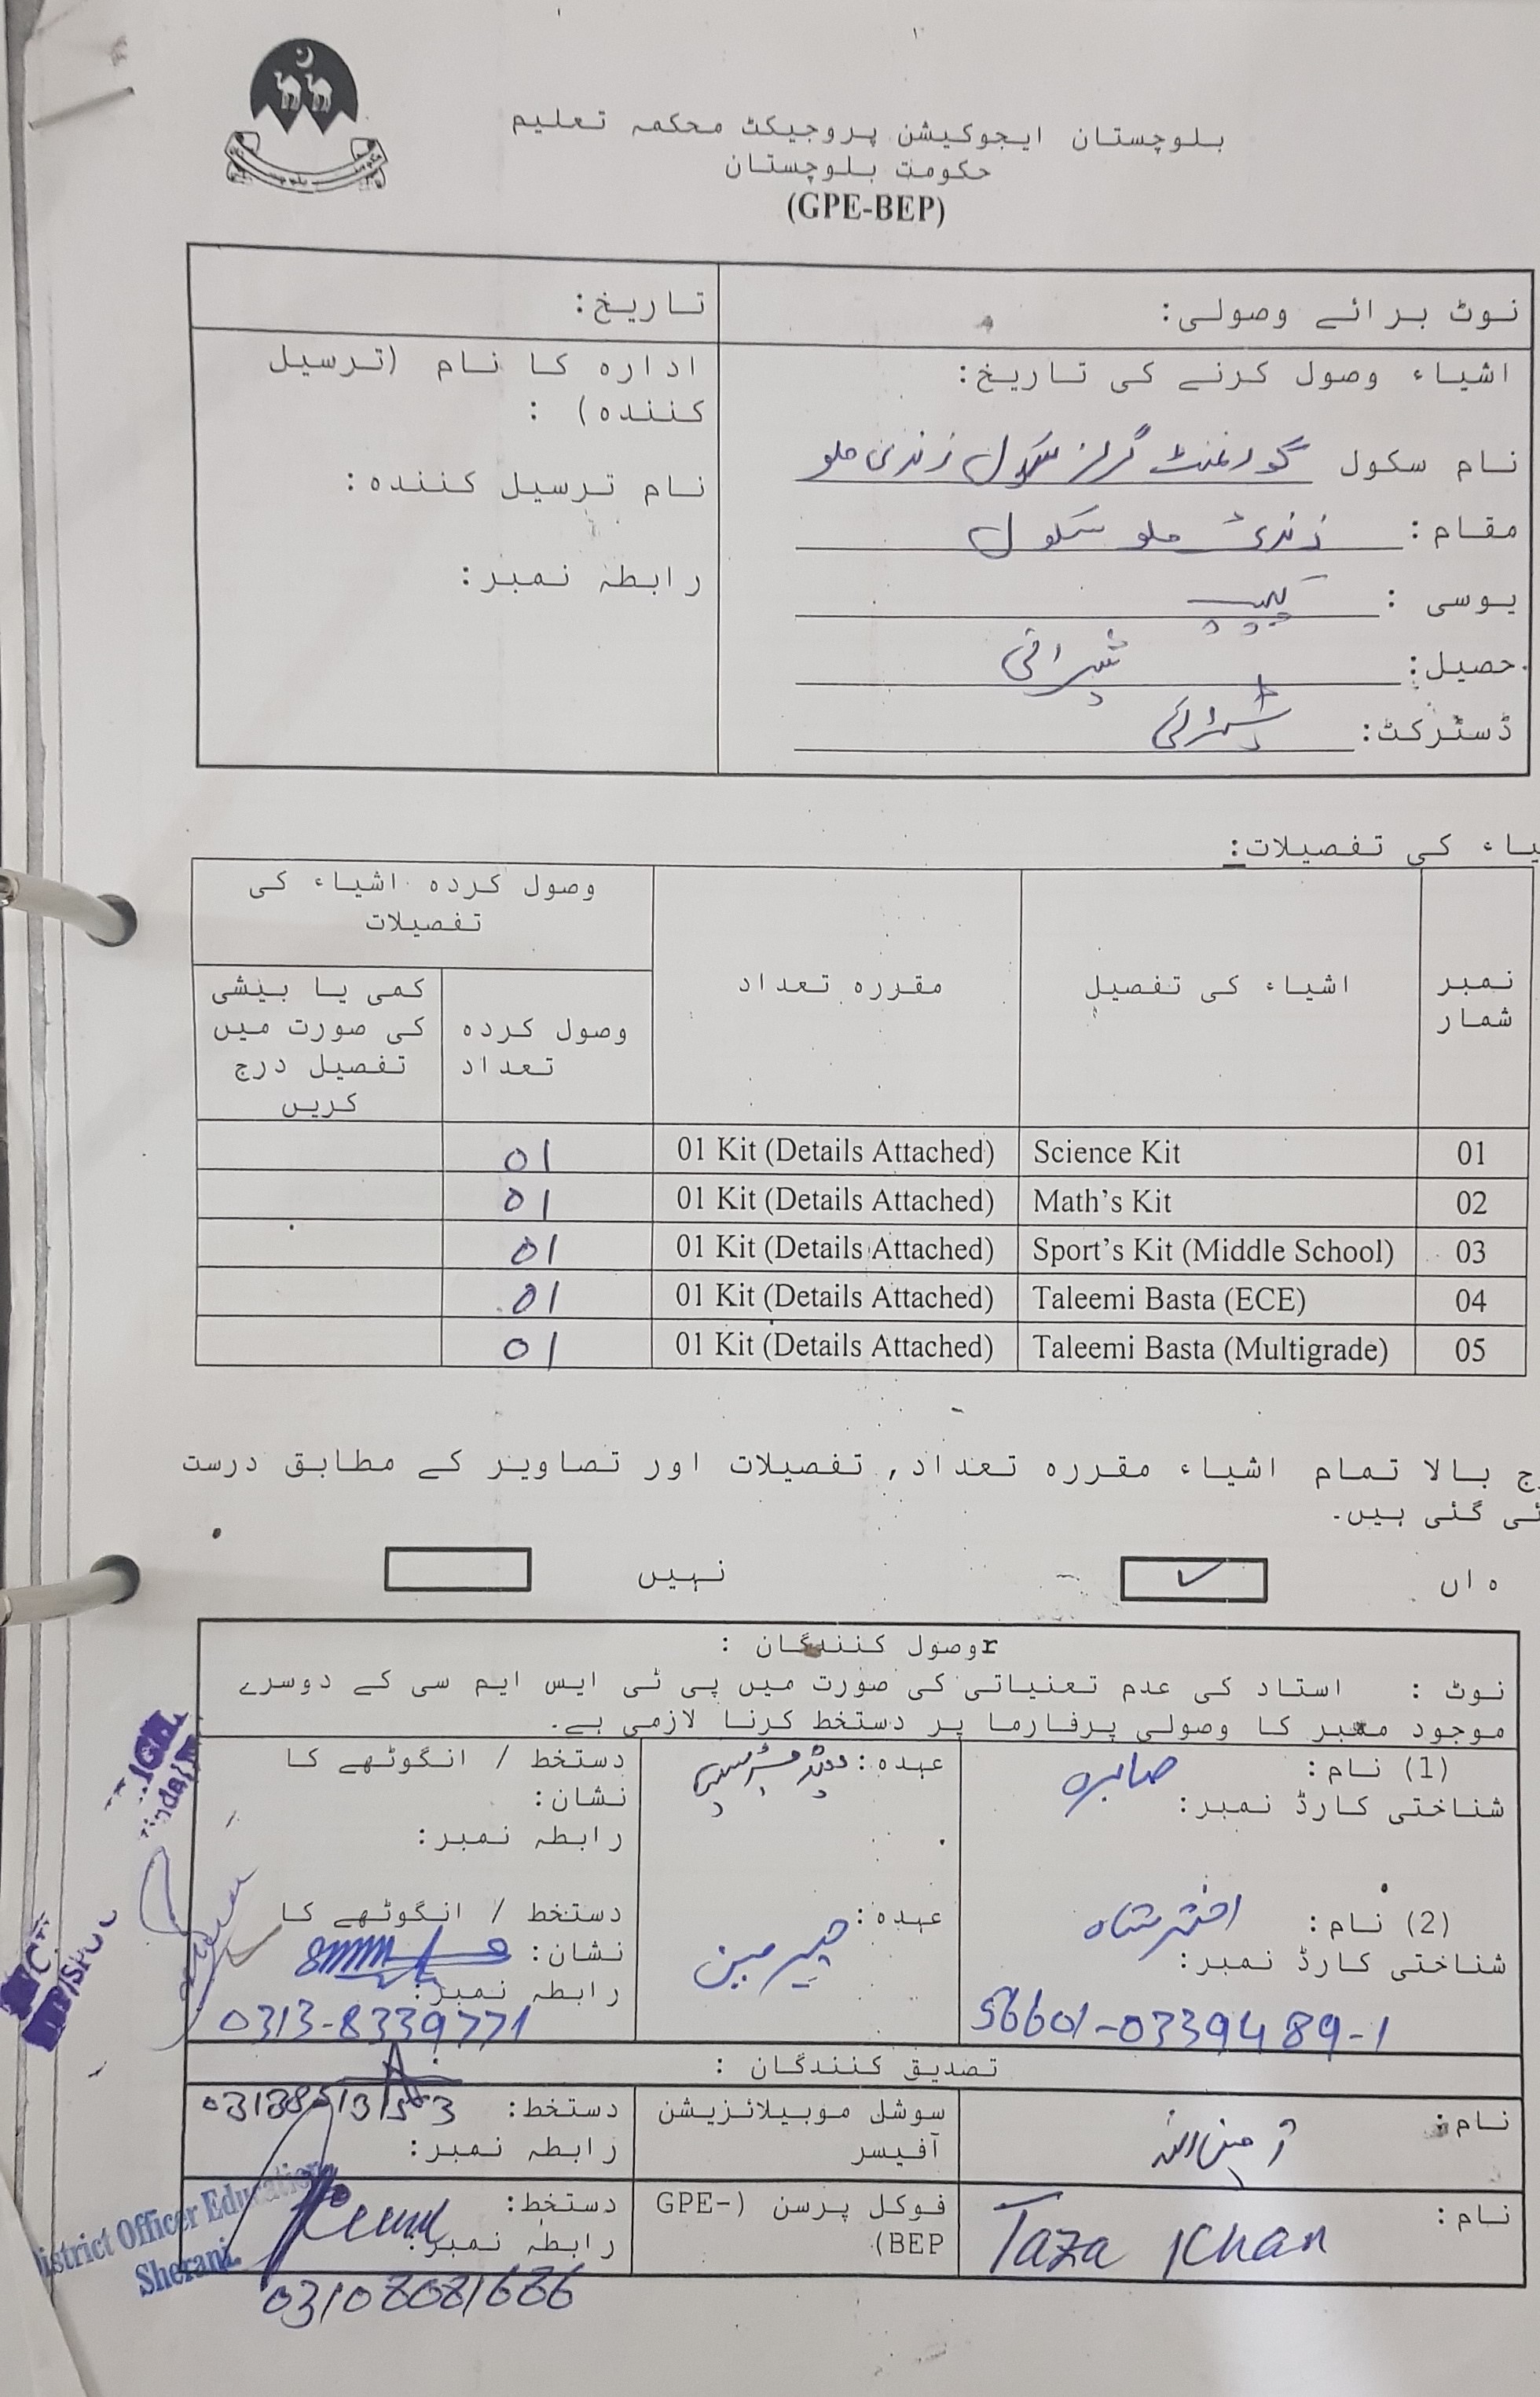 بلوچستان ایجوکیشن پروجیکٹ محکمہ تعلیم
حکومت بلوچستان
(GPE-BEP)
نوٹ برائے وصولی:
تاریخ:
اشیاء وصول کرنے کی تاریخ:
نام سکول گورنمنٹ گرلز سکول زندری ملو
مقام: زندری ملو سکول
یوسی :
حصیل: شیرانی
ڈسٹرکٹ: شیرانی
ادارہ کا نام (ترسیل
کنندہ) :
نام ترسیل کنندہ:
رابطہ نمبر:
یاء کی تفصیلات:
نمبر شمار
اشیاء کی تفصیل
مقررہ تعداد
وصول کردہ اشیاء کی تفصیلات
وصول کردہ تعداد
کمی یا بیشی کی صورت میں تفصیل درج کریں
01 Science Kit 01 Kit (Details Attached) 01
02 Math's Kit 01 Kit (Details Attached) 01
03 Sport's Kit (Middle School) 01 Kit (Details Attached) 01
04 Taleemi Basta (ECE) 01 Kit (Details Attached) 01
05 Taleemi Basta (Multigrade) 01 Kit (Details Attached) 01
ج بالا تمام اشیاء مقررہ تعداد, تفصیلات اور تصاویر کے مطابق درست
ئی گئی ہیں.
ہاں ✓ نہیں
rوصول کنندگان :
نوٹ : استاد کی عدم تعنیاتی کی صورت میں پی ٹی ایس ایم سی کے دوسرے
موجود ممبر کا وصولی پرفارما پر دستخط کرنا لازمی ہے.
(1) نام: صابرہ
شناختی کارڈ نمبر:
عہدہ: ہیڈ مسٹریس
دستخط / انگوٹھے کا
نشان:
رابطہ نمبر:
(2) نام: اختر شاہ
شناختی کارڈ نمبر:
56601-0339489-1
عہدہ: چیرمین
دستخط / انگوٹھے کا
نشان:
رابطہ نمبر:
0313-8339771
تصدیق کنندگان :
نام:
سوشل موبیلائزیشن
آفیسر
دستخط:
رابطہ نمبر:
نام: Taza Khan
فوکل پرسن (GPE-
BEP)
دستخط:
رابطہ نمبر:
03108081686
District Officer Education
Sherani